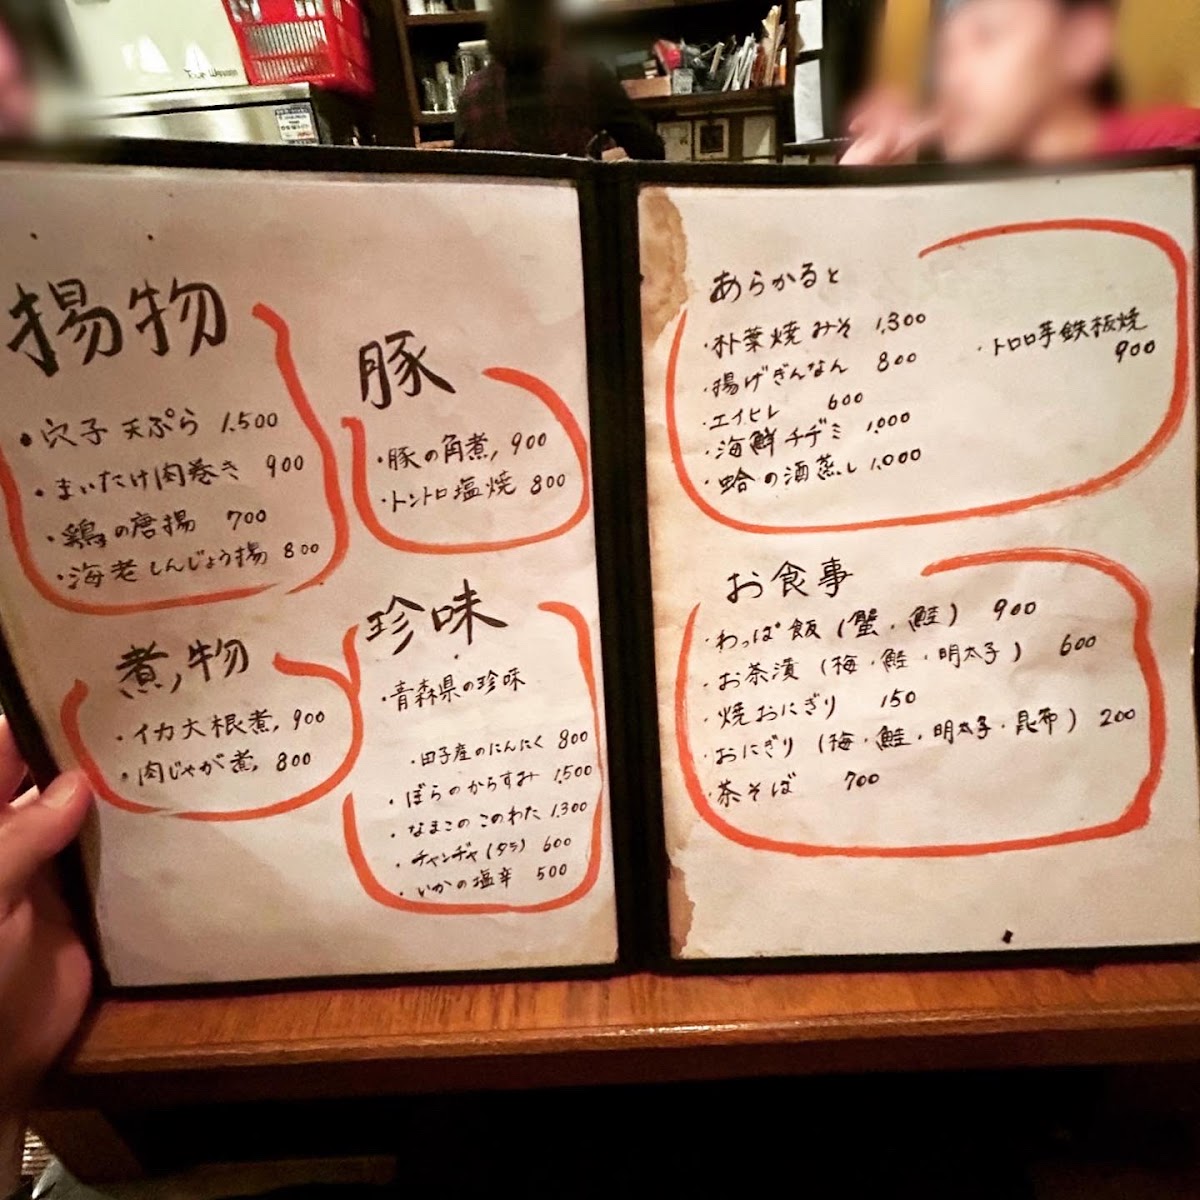 揚物
・穴子天ぷら 1,500
・まいたけ肉巻き 900
・鶏の唐揚 700
・海老しんじょう揚 800
豚
・豚の角煮 900
・トントロ塩焼 800
煮物
・イカ大根煮 900
・肉じゃが煮 800
珍味
・青森県の珍味
・田子産のにんにく 800
・ぼらのからすみ 1,500
・なまこのこのわた 1,300
・チャンヂャ(タラ) 600
・いかの塩辛 500
あらかると
・朴葉焼みそ 1,300
・揚げぎんなん 800
・エイヒレ 600
・海鮮チヂミ 1,000
・蛤の酒蒸し 1,000
・トロロ芋鉄板焼
900
お食事
・わっぱ飯(蟹・鮭) 900
・お茶漬(梅・鮭・明太子) 600
・焼おにぎり 150
・おにぎり(梅・鮭・明太子・昆布) 200
・茶そば 700